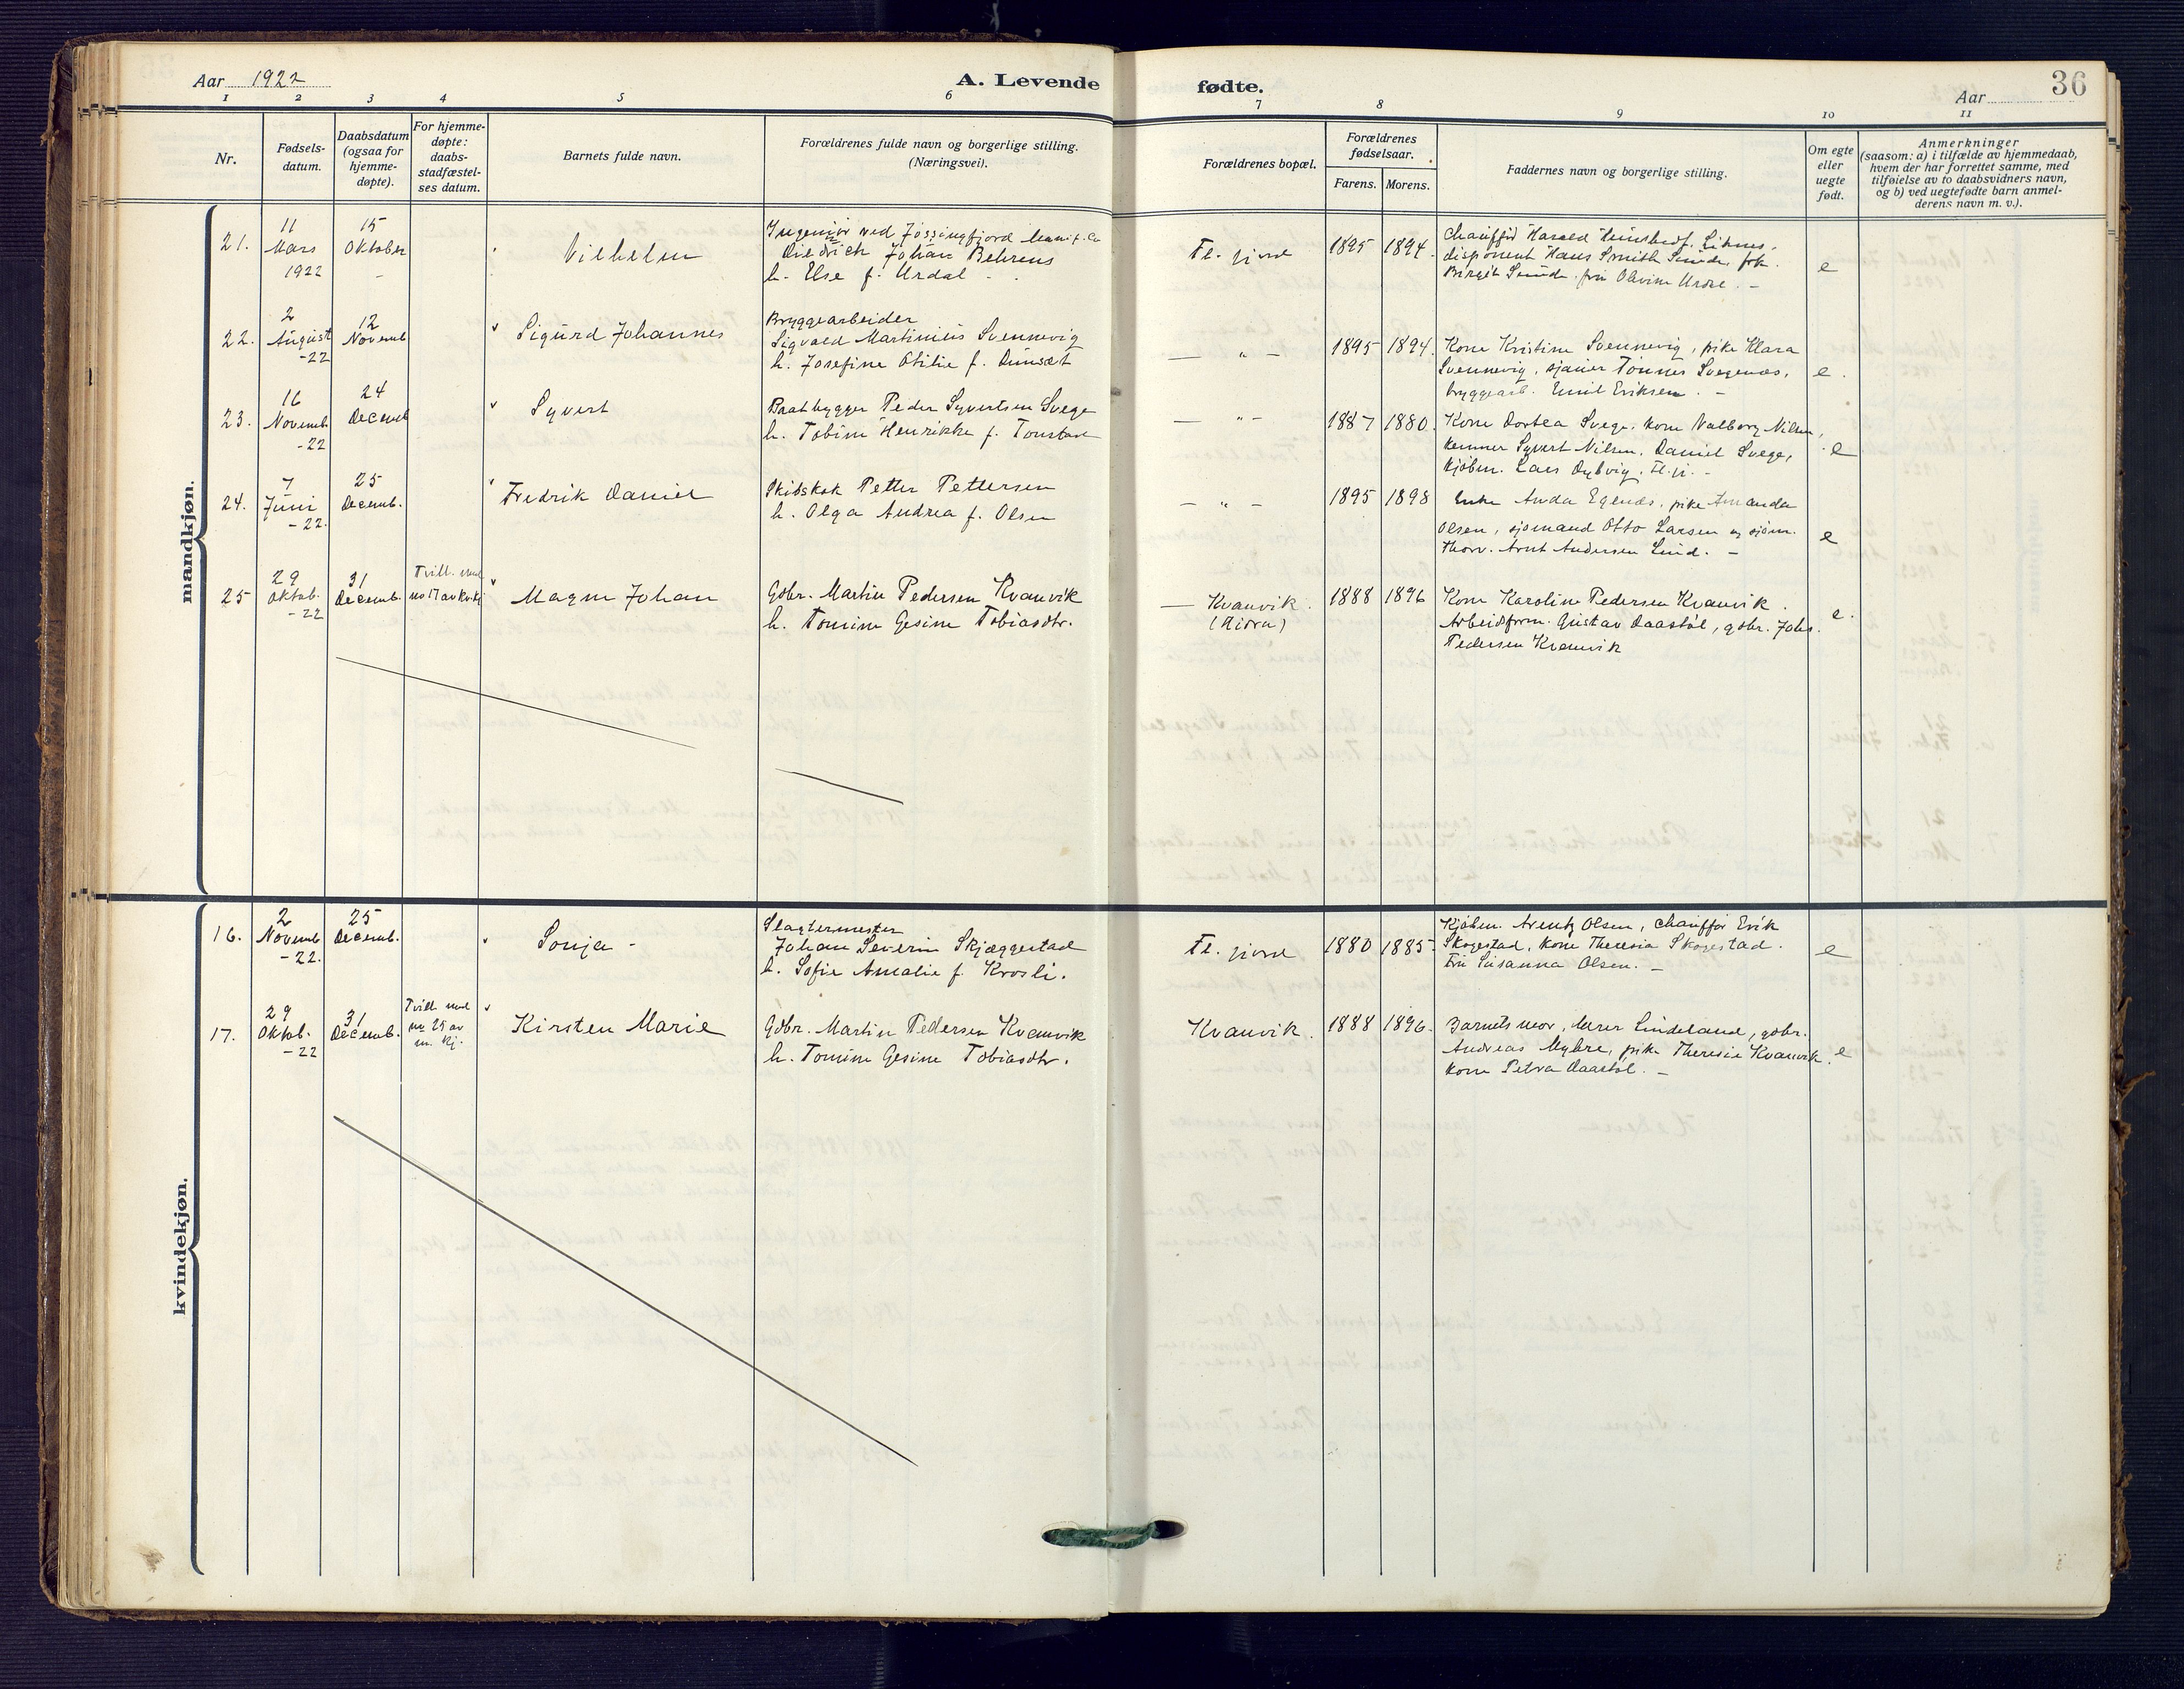 Aar 1922
A. Levende fødte.
Aar 36
1 2 3 4 5 6 7 8 9 10 11
Nr.
Fødsels-
datum.
Daabsdatum
(ogsaa for
hjemme-
døpte).
For hjemme-
døpte:
daabs-
stadfæstel-
ses datum.
Barnets fulde navn.
Forældrenes fulde navn og borgerlige stilling.
(Næringsvei).
Forældrenes bopæl.
Forældrenes
fødselsaar.
Farens. Morens.
Faddernes navn og borgerlige stilling.
Om egte
eller
uegte
født.
Anmerkninger
(saasom: a) i tilfælde av hjemmedaab,
hvem der har forrettet samme, med
tilføielse av to daabsvidners navn,
og b) ved uegtefødte barn anmel-
derens navn m. v.).
mandkjøn.
21.
11
Mars
1922
15
Oktober
-
Vilhelm
Ingeniør ved Jøssingfjord Manuf. Co
Diedrich Johan Behrens
h. Else f. Urdal
Fl. fjord
1895 1894
Chauffør Harald Liknes,
disponent Hans Smith Sunde, frk.
Birgit Sunde, fru Olivine Urdal. -
e
22.
2
August
-22
12
Novemb
Sigurd Johannes
Bryggearbeider
Sigvald Martinius Svennevig
h. Josefine Otilie f.
— " -
1895 1894.
Kone Kristine Svennevig, pike Klara
Svennevig, sjauer Tønnes Svegenæs,
bryggearb. Emil Eriksen. -
e.
23.
16
Novemb
-22
24
Decemb
Syvert
Baatbygger Peder Syvertsen Svege
h. Tobine Henrikke f. Tonstad
— " -
1887 1880.
Kone Dortea Svege, kone Valborg Nilsen,
kemner Syvert Nilsen, Daniel Svege,
kjøbm. Lars Dybvig, Fl.fj. -
e
24.
7
Juni
-22.
25
Decemb.
Fredrik Daniel
Skibskok Petter Pettersen
h. Olga Andrea f. Olsen
— " -
1895 1898
Enke Anda Egenæs, pike Amanda
Olsen, sjømand Otto Larsen og sjøm.
Thorv. Arnt Andersen Lind. -
e
25
29
Oktob.
-22
31
Decemb.
Tvill. med
no 17 av kv.kj
Magne Johan
Gdbr. Martin Pedersen Kvanvik
h. Tomine Gesine Tobiasdtr.
— Kvanvik.
(Hidra)
1888 1896
Kone Karoline Pedersen Kvanvik.
Arbeidsform. Gustav Daastøl, gdbr. Johs.
Pedersen Kvanvik
e.
kvindekjøn.
16.
2
Novemb
-22.
25
Decemb.
Sonja -
Slagtermester
Johan Severin Skjæggestad
h. Sofie Amalie f. Krosli.
Fl. fjord
1880 1885.
Kjøbm. Arentz Olsen, chauffør Erik
Skogestad, kone Theresia Skogestad.
Fru Susanna Olsen. -
e
17.
29
Oktob.
-22
31
Decemb.
Tvill. med
nr 25 av
m. kj.
Kirsten Marie
Gdbr. Martin Pedersen Kvanvik
h. Tomine Gesine Tobiasdtr.
Kvanvik.
1888 1896.
Barnets mor, lærer Lindeland, gdbr.
Andreas Myhre, pike Theresie Kvanvik,
kone Petra Daastøl. -
e